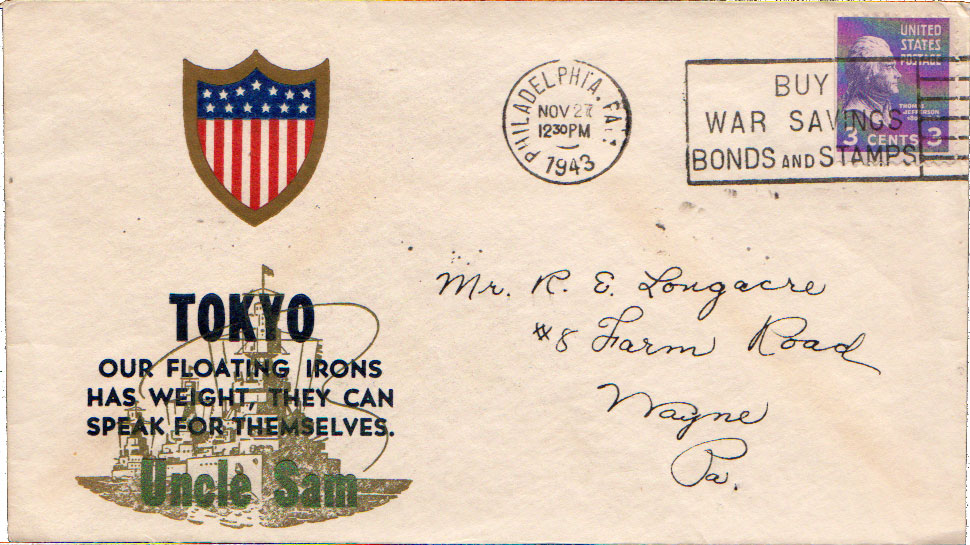 PHILADELPHIA, PA.
NOV 27
12 30 PM
1943
BUY
WAR SAVINGS
BONDS AND STAMPS
UNITED
STATES
POSTAGE
THOMAS
JEFFERSON
3 CENTS 3
Mr. R. E. Longacre
#8 Farm Road
Wayne
Pa.
TOKYO
OUR FLOATING IRONS
HAS WEIGHT, THEY CAN
SPEAK FOR THEMSELVES.
Uncle Sam